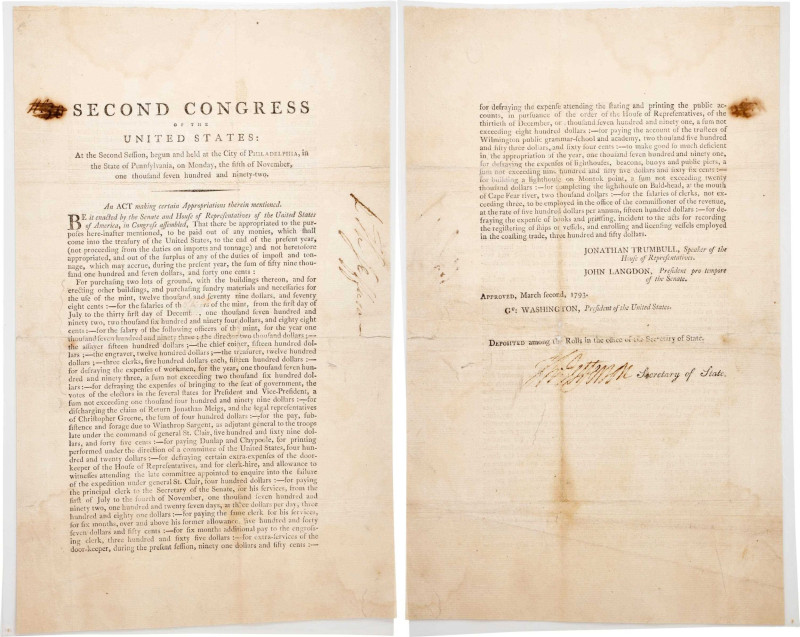 SECOND CONGRESS
OF THE
UNITED STATES:
At the Second Session, begun and held at the City of PHILADELPHIA, in
the State of Pennsylvania, on Monday, the fifth of November,
one thousand seven hundred and ninety-two.
An ACT making certain Appropriations therein mentioned.
BE it enacted by the Senate and House of Representatives of the United States
of America, in Congress assembled, That there be appropriated to the pur-
poses herein-after mentioned, to be paid out of any monies, which shall
come into the treasury of the United States, to the end of the present year,
(not proceeding from the duties on imports and tonnage) and not heretofore
appropriated, and out of the surplus of any of the duties of impost and ton-
nage, which may accrue, during the present year, the sum of fifty nine thou-
sand one hundred and seven dollars, and forty one cents:
For purchasing two lots of ground, with the buildings thereon, and for
erecting other buildings, and purchasing sundry materials and necessaries for
the use of the mint, twelve thousand and seventy nine dollars, and seventy
eight cents:—for the salaries of the of the mint, from the first day of
July to the thirty first day of December, one thousand seven hundred and
ninety two, two thousand six hundred and ninety four dollars, and eighty eight
cents:—for the salary of the following officers of the mint, for the year one
thousand seven hundred and ninety three; the director two thousand dollars:—
the assayer fifteen hundred dollars:—the chief coiner, fifteen hundred dol-
lars;—the engraver, twelve hundred dollars:—the treasurer, twelve hundred
dollars;—three clerks, five hundred dollars each, fifteen hundred dollars:—
for defraying the expenses of workmen, for the year, one thousand seven hun-
dred and ninety three, a sum not exceeding two thousand six hundred dol-
lars:—for defraying the expenses of bringing to the seat of government, the
votes of the electors in the several states for President and Vice-President, a
sum not exceeding one thousand four hundred and ninety nine dollars:—for
discharging the claim of Return Jonathan Meigs, and the legal representatives
of Christopher Greene, the sum of four hundred dollars:—for the pay, sub-
sistence and forage due to Winthrop Sargent, as adjutant general to the troops
late under the command of general St. Clair, five hundred and sixty nine dol-
lars, and forty five cents:—for paying Dunlap and Claypoole, for printing
performed under the direction of a committee of the United States, four hun-
dred and twenty dollars:—for defraying certain extra-expenses of the door-
keeper of the House of Representatives, and for clerk-hire, and allowance to
witnesses attending the late committee appointed to enquire into the failure
of the expedition under general St. Clair, four hundred dollars:—for paying
the principal clerk to the Secretary of the Senate, for his services, from the
first of July to the fourth of November, one thousand seven hundred and
ninety two, one hundred and twenty seven days, at three dollars per day, three
hundred and eighty one dollars:—for paying the same clerk for his services,
for six months, over and above his former allowance, five hundred and forty
seven dollars and fifty cents:—for six months additional pay to the engross-
ing clerk, three hundred and sixty five dollars:—for extra-services of the
door-keeper, during the present session, ninety one dollars and fifty cents:—
for defraying the expense attending the stating and printing the public ac-
counts, in pursuance of the order of the House of Representatives, of the
thirtieth of December, one thousand seven hundred and ninety one, a sum not
exceeding eight hundred dollars:—for paying the account of the trustees of
Wilmington public grammar-school and academy, two thousand five hundred
and fifty three dollars, and sixty four cents:—to make good so much deficient
in the appropriation of the year, one thousand seven hundred and ninety one,
for defraying the expenses of lighthouses, beacons, buoys and public piers, a
sum not exceeding nine hundred and fifty five dollars and sixty six cents:—
for building a lighthouse on Montok point, a sum not exceeding twenty
thousand dollars:—for completing the lighthouse on Bald-head, at the mouth
of Cape Fear river, two thousand dollars:—for the salaries of clerks, not ex-
ceeding three, to be employed in the office of the commissioner of the revenue,
at the rate of five hundred dollars per annum, fifteen hundred dollars:—for de-
fraying the expense of books and printing, incident to the acts for recording
the registering of ships or vessels, and enrolling and licensing vessels employed
in the coasting trade, three hundred and fifty dollars.
JONATHAN TRUMBULL, Speaker of the
House of Representatives.
JOHN LANGDON, President pro tempore
of the Senate.
APPROVED, March second, 1793.
Go: WASHINGTON, President of the United States.
DEPOSITED among the Rolls in the office of the Secretary of State.
Th: Jefferson Secretary of State.